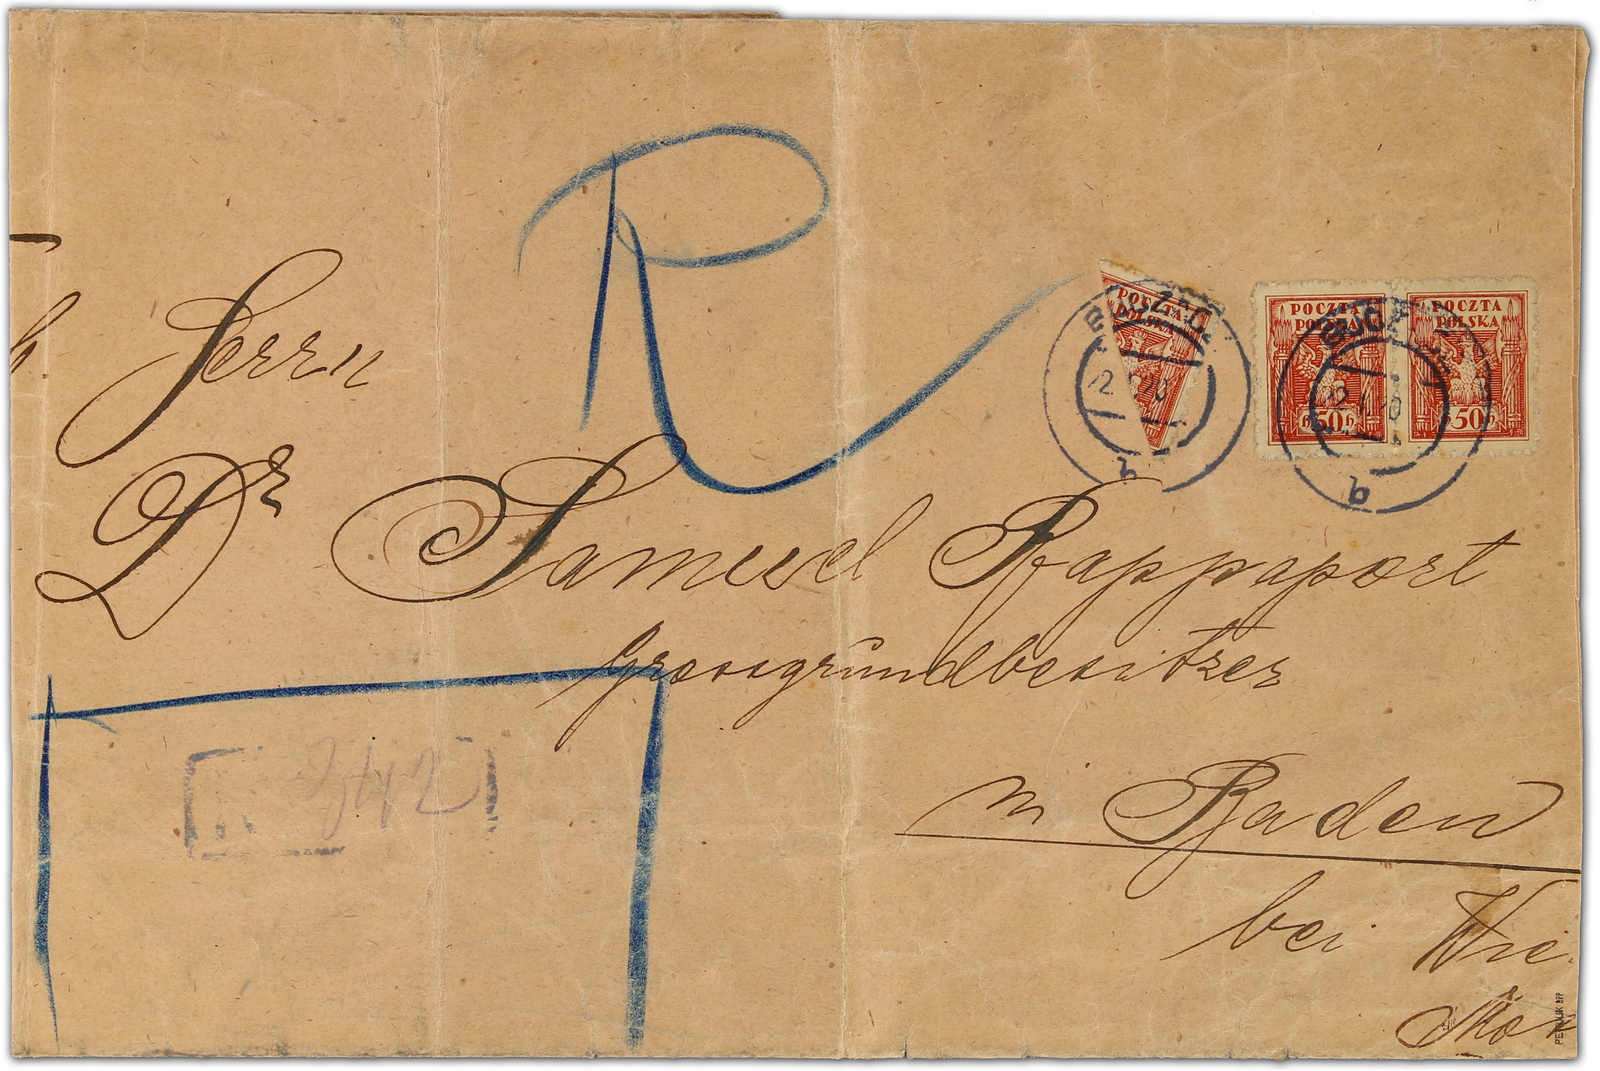 R
Herrn
Dr Samuel Rappaport
Grossgrundbesitzer
in Baden
bei Wie
POCZTA
POLSKA
POCZTA
POLSKA
50
POCZTA
POLSKA
50
b
b